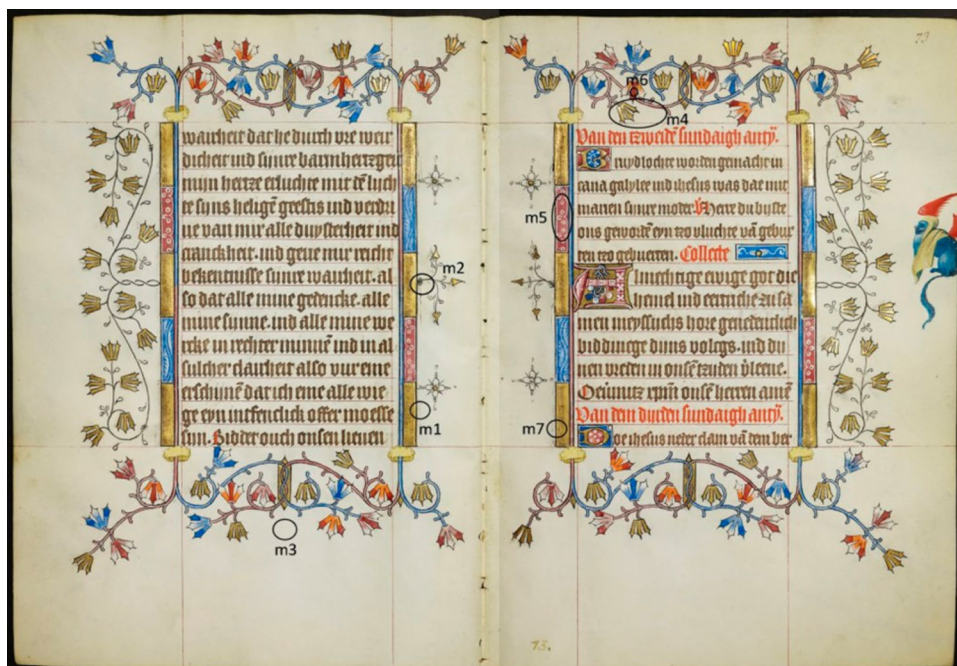 wairheit dat he durch vre weir
dicheit ind sinre barmhertzgeit
mijn hertze erluchte mit dē lych
te sijns heligē geestis ind verdri
ue van mir alle duysterheit ind
cranckheit. ind geue mir reicht
bekentnisse sinre wairheit. al
so dat alle mine gedencke. alle
mine sinne. ind alle mine we
rcke in rechter minnē ind in al
sulcher clairheit also vur eme
erschinē dat ich eme alle wie
ge eyn intfenclick offer moesse
sijn. Bidder ouch onsen lieuen
m2
m1
m3
73
m6
m4
Van den tzweidē sundaigh antÿ.
E ruydlochte worden gemacht in
cana galylee ind ihesus was dae mit
marien sinre moder. Here du byste
m5
ons gewordē eyn tzo vluchte vā gebur
ten tzo gebueren. Collecte
Almechtige ewige got die
hemel ind eertriche zu sa
men
hore genedenlich
bid dinege dijns volcgs. ind
nen vreden in onsē tzijden
onsē herren
m7
Van dem dirden sundaigh antÿ.
Doe ihesus neter clam vā dem ber
73.